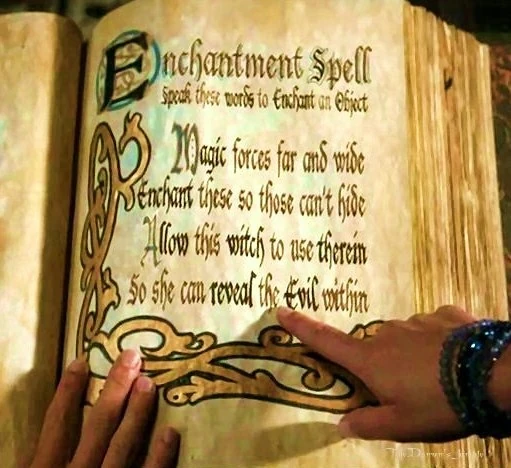 Enchantment Spell
Speak these words to Enchant an Object
Magic forces far and wide
Enchant these so those can't hide
Allow this witch to use therein
So she can reveal the Evil within